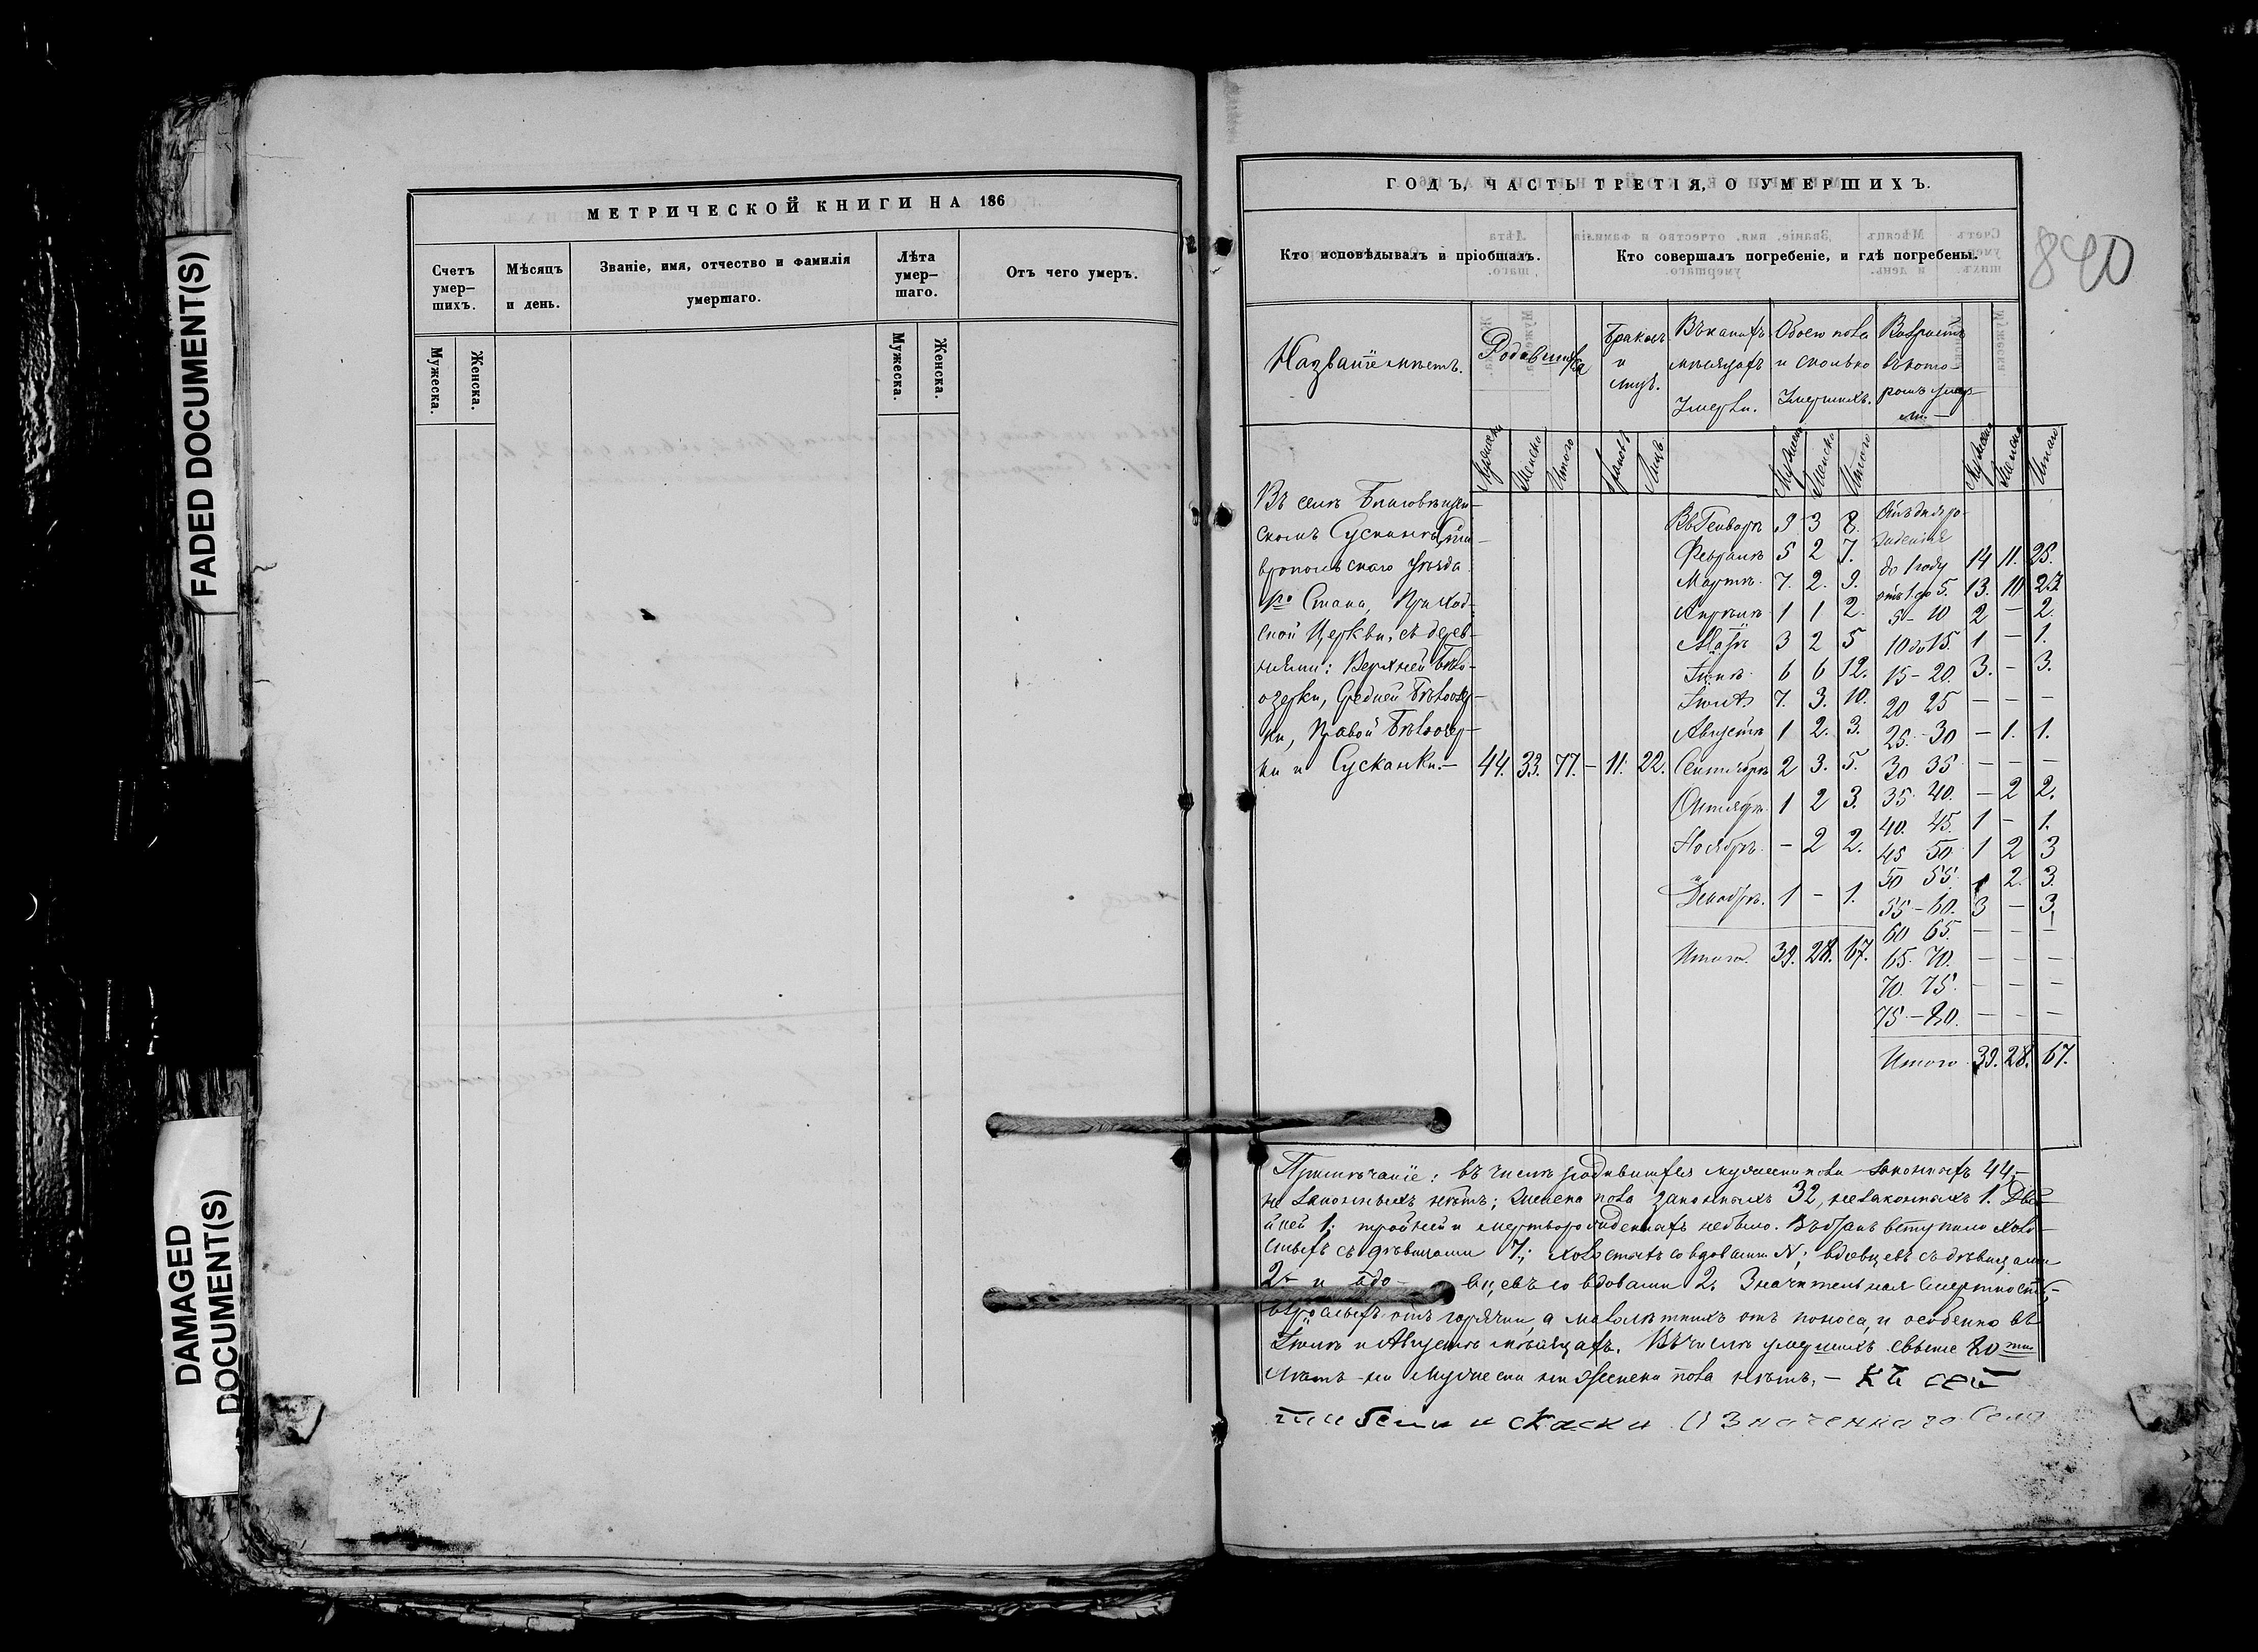 FADED DOCUMENT(S)
DAMAGED
DOCUMENT(S)
МЕТРИЧЕСКОЙ КНИГИ НА 186
Счетъ умер-шихъ.
Мѣсяцъ и день.
Званіе, имя, отчество и фамилія умершаго.
Лѣта умер-шаго.
Отъ чего умеръ.
Мужеска.
Женска.
Мужеска.
Женска.
ГОДЪ, ЧАСТЬ ТРЕТІЯ, О УМЕРШИХЪ.
840
Кто исповѣдывалъ и пріобщалъ.
Кто совершалъ погребеніе, и гдѣ погребены.
Названіе мѣстъ.
Родившихся
Браковъ и лицъ.
Въ какихъ мѣсяцахъ Умерли.
Обоего пола и сколько Умершихъ.
Возрастъ въ кото-ромъ умер-ли
Мужеска Женска Итого
Браковъ Лицъ
Мужеска Женска Итого
Мужеска Женска Итого
Въ селѣ Благовѣщен-
скомъ Сусканѣ, Ста-
вропольскаго Уѣзда
1го Стана, Приход-
ской Церкви, съ дерев-
нями: Верхней Бѣло-
озерки, Средней Бѣлоозер-
ки, Правой Бѣлоозер-
ки и Сусканки.— 44. 33. 77. — 11. 22.
Въ Генварѣ 3 8.
Февралѣ 5 2 7.
Мартѣ 7. 2. 9.
Апрѣлѣ 1 1 2.
Маѣ 3 2 5
Іюнѣ 6 6 12.
Іюлѣ 7. 3. 10.
Августѣ 1 2. 3.
Сентябрѣ 2 3. 5.
Октябрѣ 1 2 3.
Ноябрѣ — 2 2.
Декабрѣ. 1 — 1.
Итого. 39. 28. 67.
Отъ дня ро-
жденія
до 1 году 14 11. 25.
отъ 1 до 5. 13. 10 23
5 - 10 2 — 2.
10 до 15. 1 — 1.
15 - 20. 3. — 3.
20 25 — — —
25 - 30 — 1. 1.
30 35 — — —
35 40. — 2 2.
40. 45. 1 — 1.
45 50 1 2 3
50 55. 1 2. 3.
55 - 60. 3 — 3.
60 65. — — —
65. 70. — — —
70. 75. — — —
75 - 80. — — —
Итого 39. 28. 67.
Примѣчаніе: въ числѣ родившихся мужеска пола законныхъ 44,
не законныхъ нѣтъ; женска пола законныхъ 32, незаконныхъ 1. Двой-
ней 1; тройней и мертворожденныхъ небыло. Въ бракъ вступило холо-
стыхъ съ дѣвицами 7; холостыхъ со вдовами; вдовцевъ съ дѣвицами
2 и вдо- вцевъ со вдовами 2. Значительная смертность
взрослыхъ отъ горячки, а малолѣтнихъ отъ поноса, и особенно въ
Іюлѣ и Августѣ мѣсяцахъ. Въ числѣ умершихъ свыше 80ти
лѣтъ ни мужеска ни женска пола нѣтъ. — Къ сей
означеннаго Села